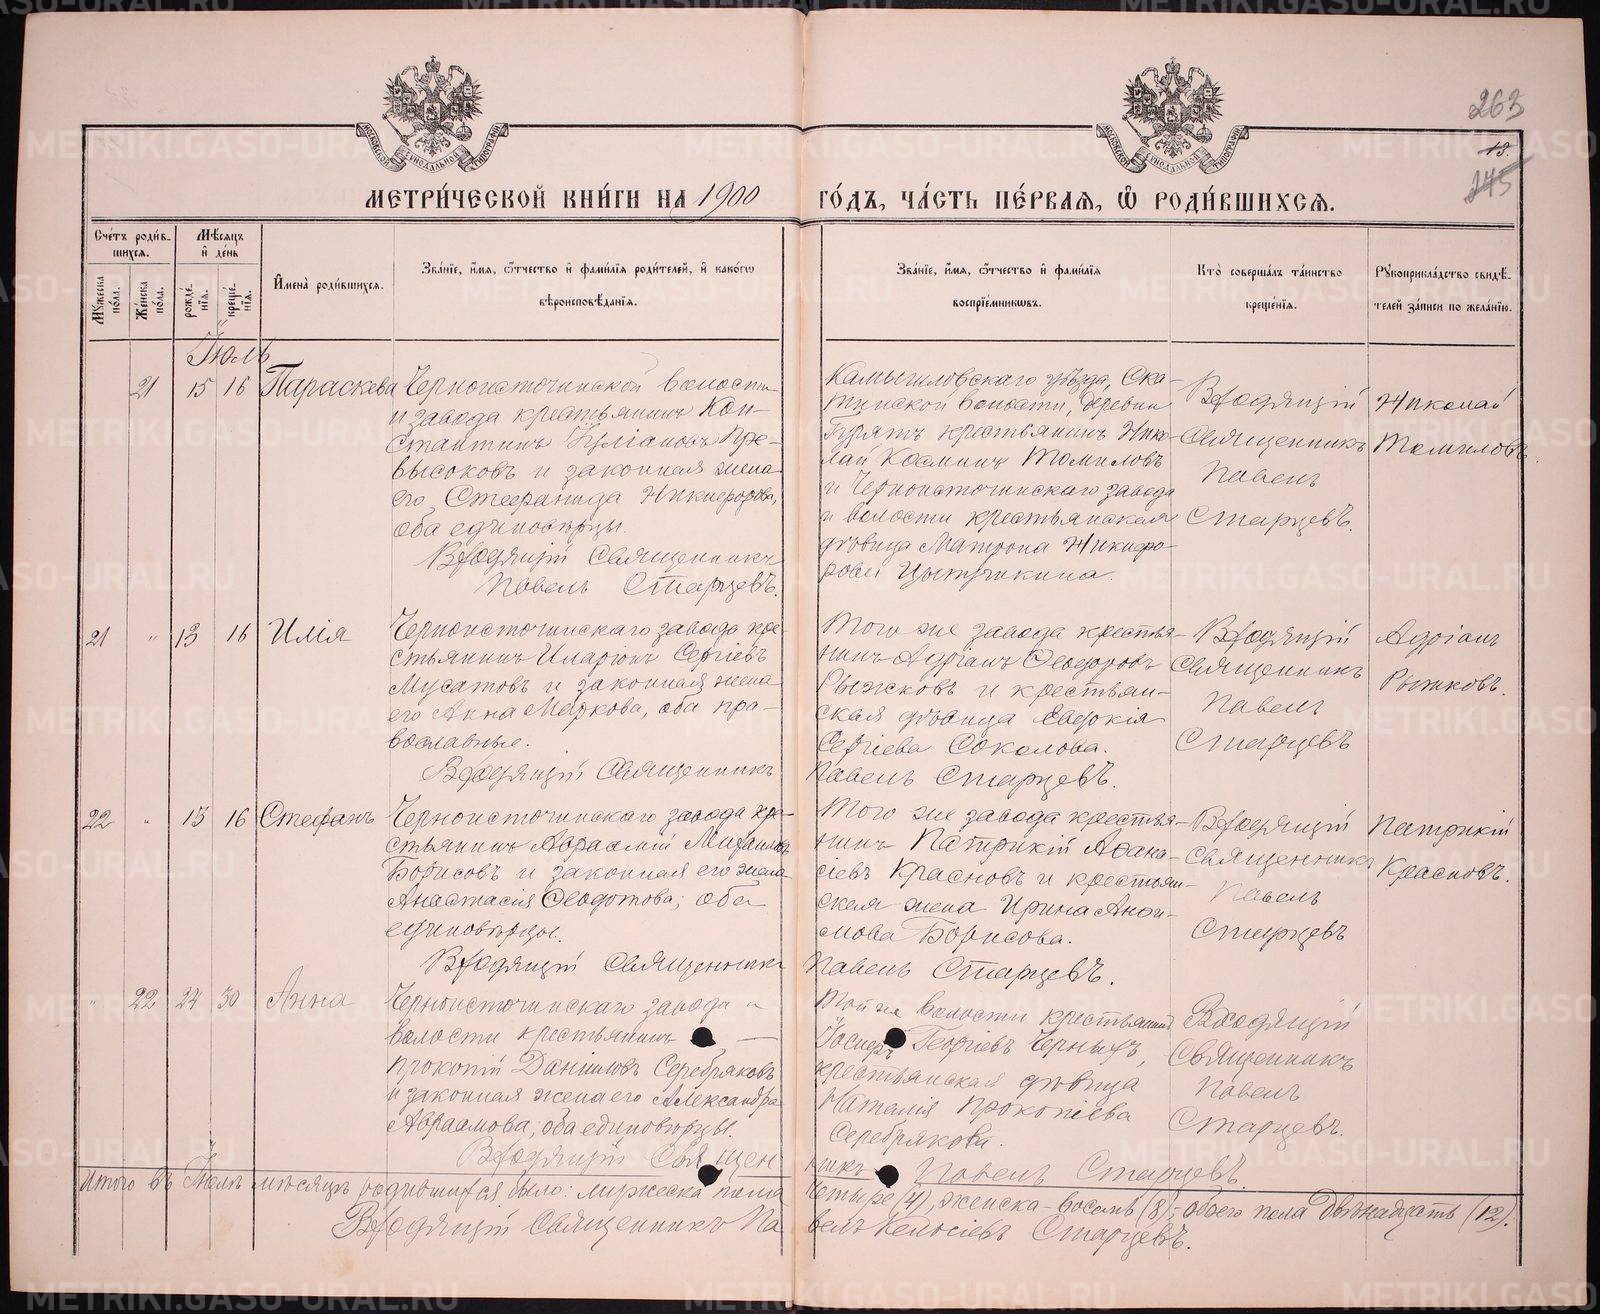 263
13.
245
МЕТРИ́ЧЕСКОЙ КНИ́ГИ НА 1900 ГО́ДЪ, ЧА́СТЬ ПЕ́РВАЯ, Ѽ РОДИ́ВШИХСЯ.
Сче́тъ роди́в-
шихся.
Му́жеска по́ла.
Же́нска по́ла.
Мѣ́сяцъ и҆ де́нь
рожде́нїя.
креще́нїя.
И҆мена̀ роди́вшихся.
Зва́нїе, и҆́мя, ѻ҆́тчество и҆ фами́лїя роди́телей, и҆ како́гѡ
вѣроисповѣ́данїя.
Зва́нїе, и҆́мя, ѻ҆́тчество и҆ фами́лїя
воспрїе́мникѡвъ.
Кто̀ соверша́лъ та́инство
креще́нїя.
Рꙋкоприкла́дство свидѣ́-
телей за́писи по жела́нїю.
Іюль
21 15 16 Параскева
Черноисточинской волости
и завода крестьянинъ Кон-
стантинъ Іуліановъ Пре-
высоковъ и законная жена
его Стефанида Никифорова,
оба единовѣрцы.
Входящій Священникъ
Павелъ Старцевъ.
Камышловскаго уѣзда, Ска-
тинской волости, деревни
Бурятъ крестьянинъ Нико-
лай Косминъ Томиловъ
и Черноисточинскаго завода
и волости крестьянская
дѣвица Матрона Никифо-
рова
Входящій
Священникъ
Павелъ
Старцевъ.
Николай
Томиловъ.
21 " 13 16 Илія
Черноисточинскаго завода кре-
стьянинъ Иларіонъ Сергіевъ
Мусатовъ и законная жена
его Анна Маркова, оба пра-
вославные.
Входящій Священникъ
Того же завода крестья-
нинъ Адріанъ Ѳеодоровъ
Рыжковъ и крестьян-
ская дѣвица Евдокія
Сергіева Соколова.
Павелъ Старцевъ.
Входящій
Священникъ
Павелъ
Старцевъ
Адріанъ
Рыжковъ.
22 " 15 16 Стефанъ
Черноисточинскаго завода кре-
стьянинъ Авраамій Михаиловъ
Борисовъ и законная его жена
Анастасія Ѳеодотова; оба
единовѣрцы.
Входящій Священникъ
Того же завода крестья-
нинъ Патрикій Аѳана-
сіевъ Красновъ и крестьян-
ская жена Ирина Аноси-
мова Борисова.
Павелъ Старцевъ.
Входящій
Священникъ
Павелъ
Старцевъ
Патрикій
Красновъ.
" 22 24 30 Анна
Черноисточинскаго завода и
волости крестьянинъ
Прокопій Даніиловъ Серебряковъ
и законная жена его Александра
Авраамова, оба единовѣрцы.
Входящій Священ
Той же волости крестьянинъ
Іосифъ Георгіевъ Черныхъ,
крестьянская дѣвица
Наталія Прокопіева
Серебрякова.
никъ Павелъ Старцевъ.
Входящій
Священникъ
Павелъ
Старцевъ.
Итого въ Іюлѣ мѣсяцѣ родившихся было: мужеска пола четыре (4), женска - восемь (8); обоего пола двѣнадцать (12).
Входящій Священникъ Павелъ Старцевъ.